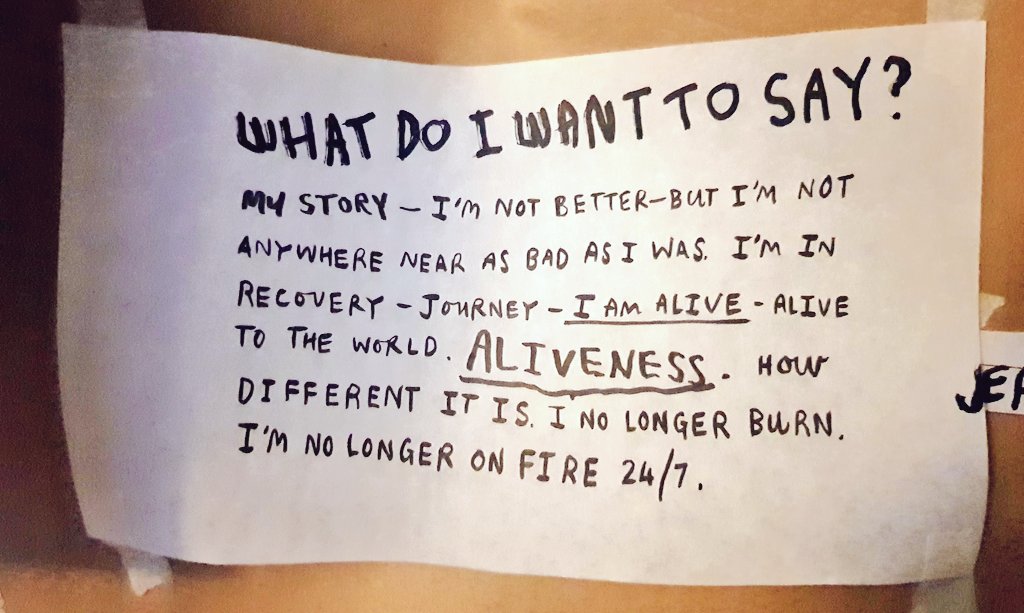 WHAT DO I WANT TO SAY?
MY STORY – I'M NOT BETTER – BUT I'M NOT
ANYWHERE NEAR AS BAD AS I WAS. I'M IN
RECOVERY – JOURNEY – I AM ALIVE - ALIVE
TO THE WORLD. ALIVENESS. HOW
DIFFERENT IT IS. I NO LONGER BURN.
I'M NO LONGER ON FIRE 24/7.